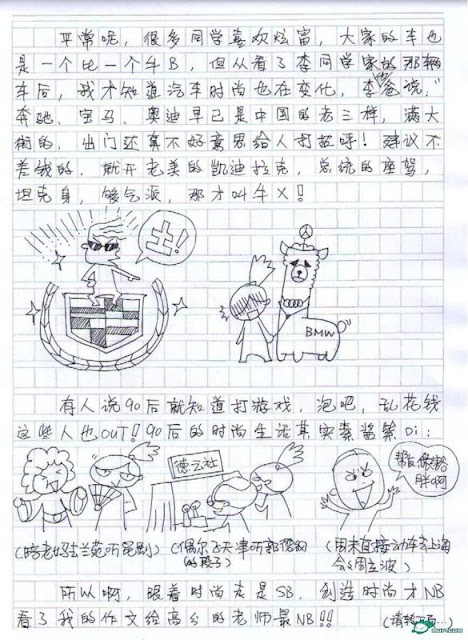 平常呢，很多同学喜欢炫富，大家的车也
是一个比一个牛B，但从看了李同学家的那辆
车后，我才知道汽车时尚也在变化，李爸说，
他
奔驰、宝马、奥迪早已是中国的老三样，满大
街的，出门还真不好意思给人打招呼！建议不
差钱的，就开老美的凯迪拉克，总统的座驾，
坦克身，够气派，那才叫牛X！
土！
BMW
有人说90后就知道打游戏，泡吧，乱花钱
这些人也OUT！90后的时尚生活其实紧凑 Di：
德云社
(陪老妈去兰苑听昆剧)
(偶尔飞天津听郭德纲的段子)
(周末直接动车去上海会会周立波)
(请转下面…)
所以啊，跟着时尚走是SB，创造时尚才NB
看了我的作文给高分的老师最NB！！